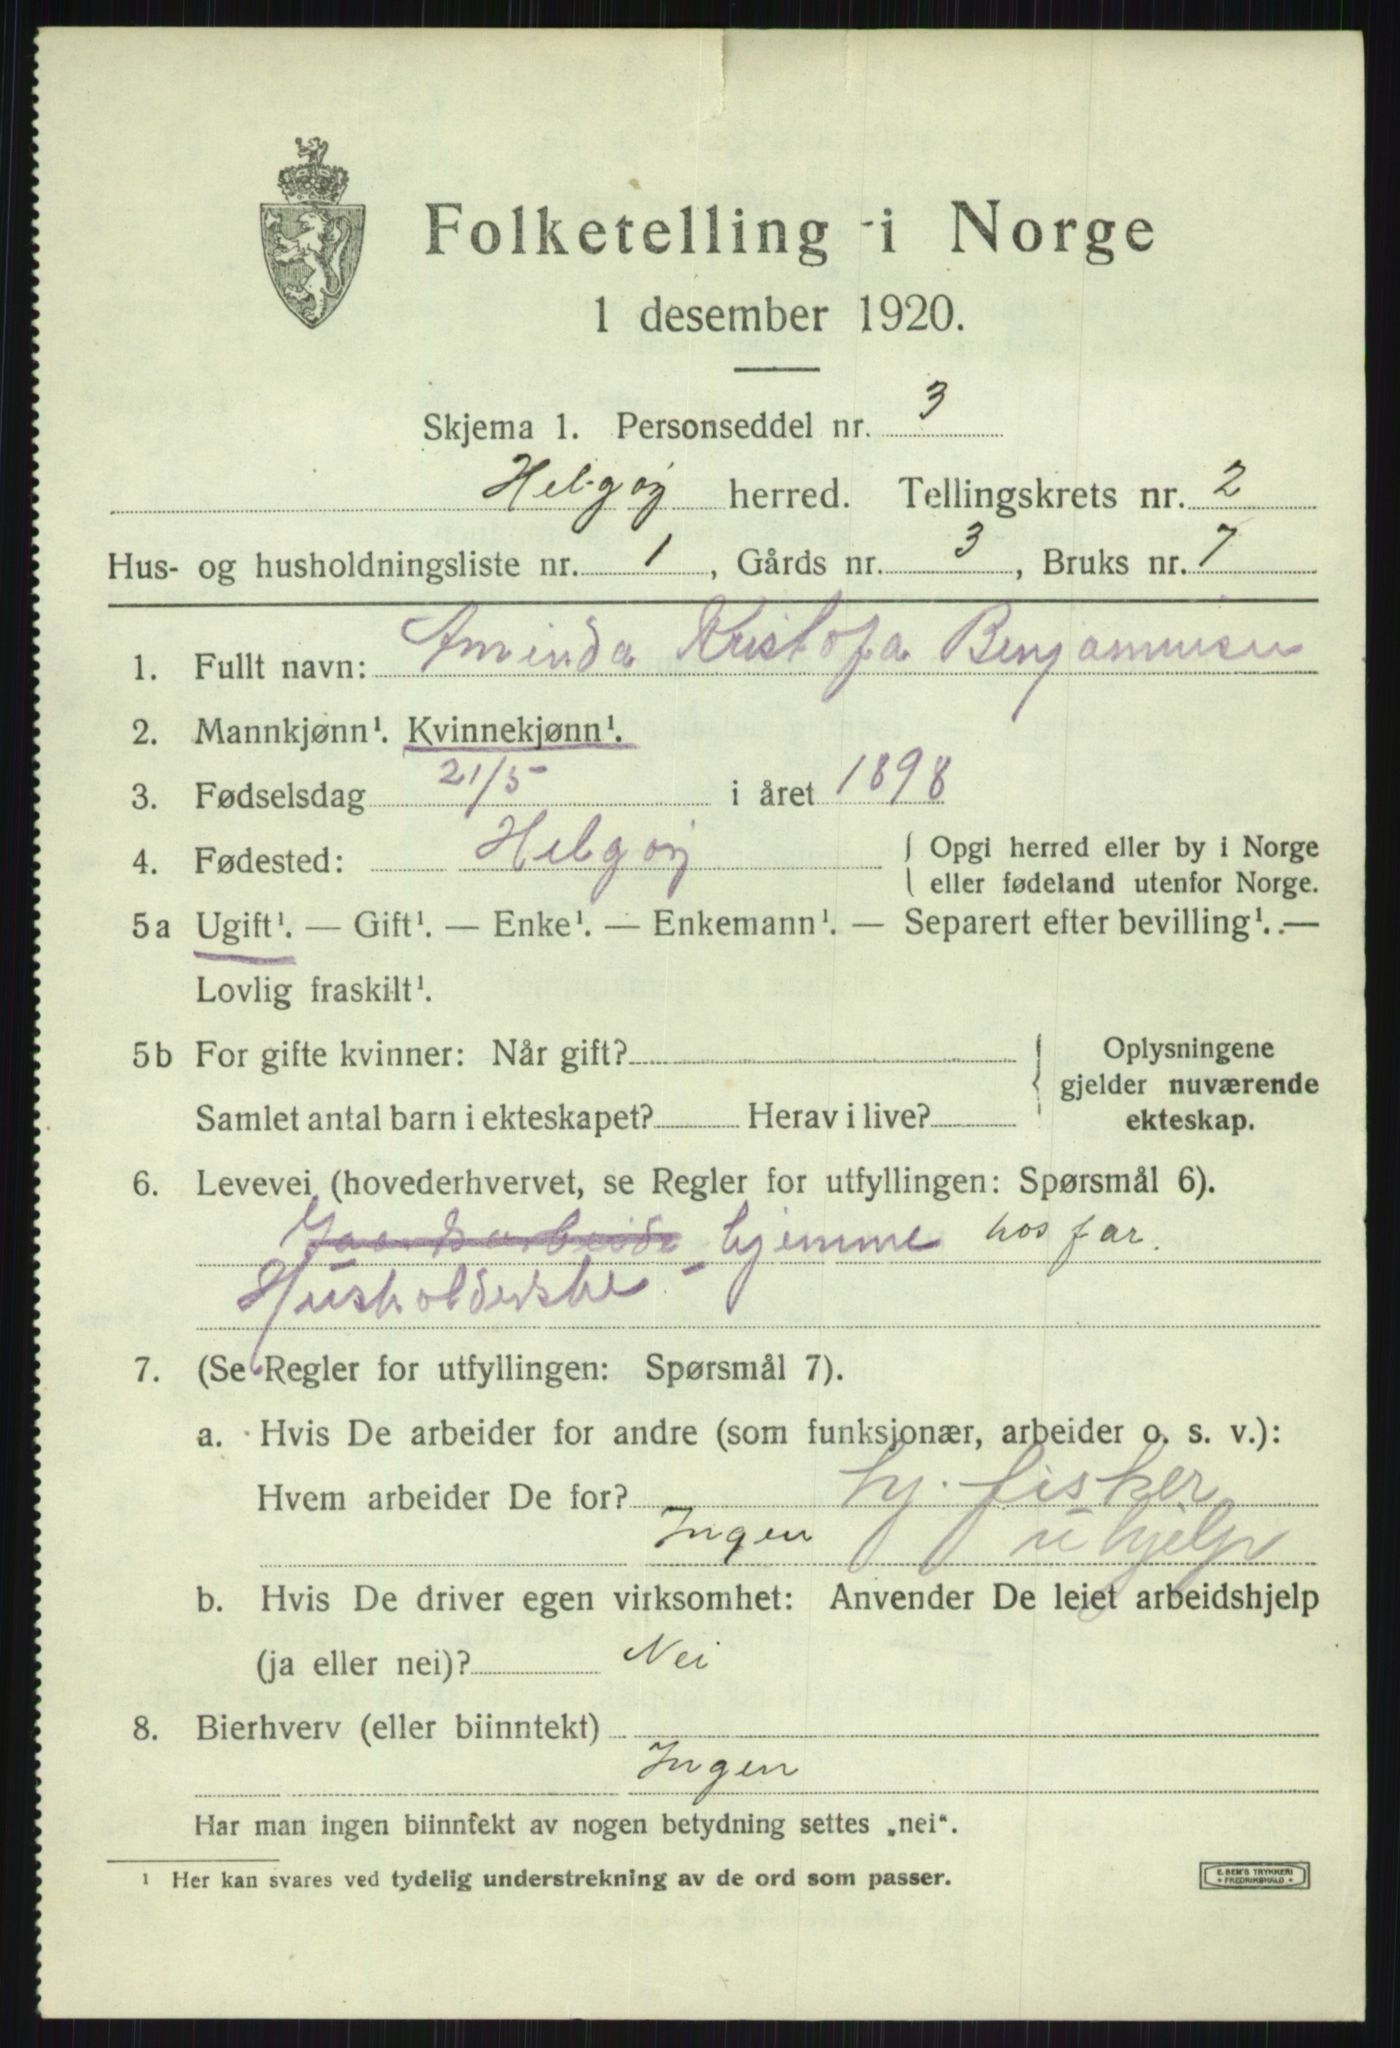 Folketelling i Norge
1 desember 1920.
Skjema 1. Personseddel nr. 3
Helgøy herred. Tellingskrets nr. 2
Hus- og husholdningsliste nr. 1, Gårds nr. 3, Bruks nr. 7
1. Fullt navn: Aminda Kristofa Benjaminsen
2. Mannkjønn¹. Kvinnekjønn¹.
3. Fødselsdag 21/5 i året 1898
4. Fødested: Helgøy { Opgi herred eller by i Norge
eller fødeland utenfor Norge.
5a Ugift¹. — Gift¹. — Enke¹. — Enkemann¹. — Separert efter bevilling¹. —
Lovlig fraskilt¹.
5b For gifte kvinner: Når gift? { Oplysningene
gjelder nuværende
Samlet antal barn i ekteskapet? Herav i live? ekteskap.
6. Levevei (hovederhvervet, se Regler for utfyllingen: Spørsmål 6).
hjemme hos far.
Husholderske
7. (Se Regler for utfyllingen: Spørsmål 7).
a. Hvis De arbeider for andre (som funksjonær, arbeider o. s. v.):
Hvem arbeider De for? hj. fisker
Ingen u hjelp
b. Hvis De driver egen virksomhet: Anvender De leiet arbeidshjelp
(ja eller nei)? Nei
8. Bierhverv (eller biinntekt)
Ingen
Har man ingen biinntekt av nogen betydning settes „nei“.
¹ Her kan svares ved tydelig understrekning av de ord som passer.
E. SEM'S TRYKKERI
• FREDRIKSHALD •